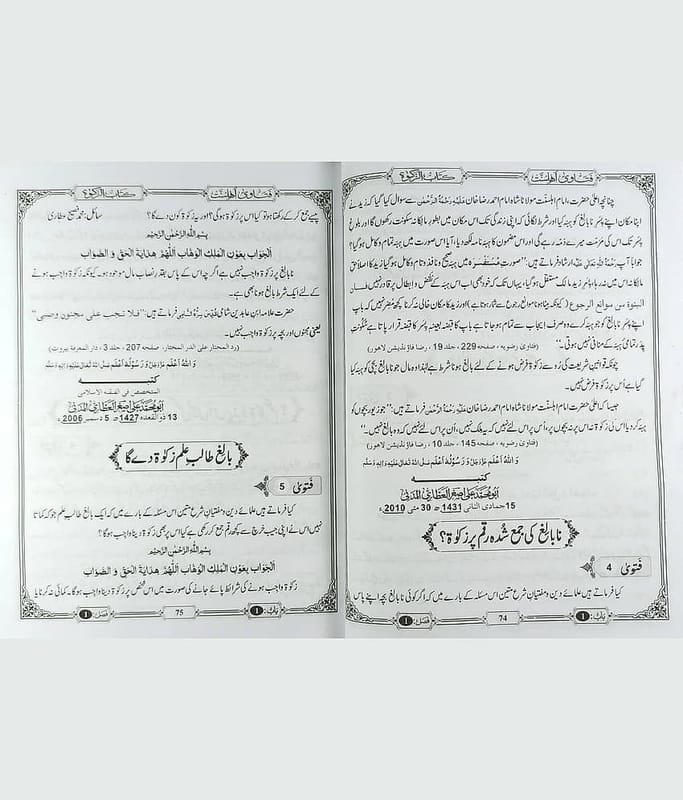 فتاوی اہلسنت
کتاب الزکوٰة
چنانچہ اعلیٰ حضرت، امام اہلسنت مولانا شاہ امام احمد رضا خان عَلَیْہِ رَحْمَۃُ الرَّحْمٰن سے سوال کیا گیا کہ زید نے
اپنا مکان اپنے پسرِ نابالغ کو ہبہ کیا اور شرط لگائی کہ اپنی زندگی تک اس مکان میں بطورِ مالکانہ سکونت رکھوں گا اور بلوغِ
پسر تک اس کی مرمت میرے ذمہ رہے گی اور اس مضمون کا ہبہ نامہ لکھ دیا، آیا اس صورت میں ہبہ تمام و کامل ہو گیا؟
جواباً آپ رَحْمَۃُ اللّٰہِ تَعَالٰی عَلَیْہ ارشاد فرماتے ہیں: ”صورتِ مُستفسَرہ میں ہبہ صحیح و نافذ و تام و کامل ہو گیا زید کا علاقۂ
مالکانہ اس میں نہ رہا، پسرِ زید ملک مستقل ہو گیا، یہاں تک کہ خود بھی اب اس ہبہ کے نقض و ابطال پر قادر نہیں فان
البنوة من موانع الرجوع (کیونکہ بیٹا ہونا موانعِ رجوع سے شمار ہوتا ہے) اور زید کا مکان خالی نہ کرنا کچھ مضر نہیں کہ باپ
اپنے پسرِ نابالغ کو جو ہبہ کرے وہ صرف ایجاب سے تمام ہو جاتا ہے باپ کا قبضہ بعینہٖ پسر کا قبضہ قرار پاتا ہے سکونتِ
پدر تمامیِ ہبہ کے منافی نہیں ہوتی۔“
(فتاوی رضویہ، صفحہ 229، جلد 19، رضا فاؤنڈیشن لاہور)
چونکہ قوانینِ شریعت کی رُو سے زکوٰة فرض ہونے کے لئے بالغ ہونا شرط ہے لہٰذا وہ مال جو نابالغ بچی کو ہبہ کیا
گیا ہے اُس پر زکوٰة فرض نہیں۔
جیسا کہ اعلیٰ حضرت امام اہلسنت مولانا شاہ امام احمد رضا خان عَلَیْہِ رَحْمَۃُ الرَّحْمٰن فرماتے ہیں: ”جو زیور بچوں کو
ہبہ کر دیا اُس کی زکوٰة نہ اس پر نہ بچوں پر، اُس پر اس لئے نہیں کہ یہ ملک نہیں، اُن پر اس لئے نہیں کہ وہ بالغ نہیں۔“
(فتاوی رضویہ، صفحہ 145، جلد 10، رضا فاؤنڈیشن لاہور)
وَ اللّٰہُ اَعْلَمُ عَزَّوَجَلَّ وَ رَسُوْلُہٗ اَعْلَم صَلَّی اللّٰہُ تَعَالٰی عَلَیْہِ وَاٰلِہٖ وَسَلَّم
کتبہ
ابو محمد علی اصغر العطاری المدنی
15 جمادی الثانی 1431 ھ 30 مئی 2010 ء
نابالغ کی جمع شدہ رقم پر زکوٰة؟
فتویٰ 4
کیا فرماتے ہیں علمائے دین و مفتیانِ شرع متین اس مسئلہ کے بارے میں کہ اگر کوئی نابالغ بچہ اپنے پاس
باب: 1
74
فصل: 1
فتاوی اہلسنت
کتاب الزکوٰة
پیسے جمع کر کے رکھتا ہو تو کیا اس پر زکوٰة ہو گی؟ اور یہ زکوٰة کون دے گا؟ سائل: محمد سمیع عطاری
بِسْمِ اللّٰہِ الرَّحْمٰنِ الرَّحِیْمِ
اَلْجَوَابُ بِعَوْنِ الْمَلِکِ الْوَھَّابِ اَللّٰھُمَّ ھِدَایَۃَ الْحَقِّ وَ الصَّوَابِ
نابالغ پر زکوٰة واجب نہیں ہے اگرچہ اس کے پاس بقدرِ نصاب مال موجود ہو۔ کیونکہ زکوٰة واجب ہونے
کے لئے ایک شرط بالغ ہونا بھی ہے۔
حضرت علامہ ابن عابدین شامی قُدِّسَ سِرُّہُ السَّامِی فرماتے ہیں: ”فلا تجب علی مجنون وصبی“
یعنی مجنون اور بچہ پر زکوٰة واجب نہیں۔
(رد المحتار علی الدر المختار، صفحہ 207، جلد 3، دار المعرفۃ بیروت)
وَ اللّٰہُ اَعْلَمُ عَزَّوَجَلَّ وَ رَسُوْلُہٗ اَعْلَم صَلَّی اللّٰہُ تَعَالٰی عَلَیْہِ وَاٰلِہٖ وَسَلَّم
کتبہ
المتخصص فی الفقہ الاسلامی
ابو محمد علی اصغر العطاری المدنی
13 ذو القعدہ 1427 ھ 5 دسمبر 2006 ء
بالغ طالب علم زکوٰة دے گا
فتویٰ 5
کیا فرماتے ہیں علمائے دین و مفتیانِ شرع متین اس مسئلہ کے بارے میں کہ ایک بالغ طالب علم جو کہ کماتا
نہیں اس نے اپنی جیب خرچ سے کچھ رقم جمع کر رکھی ہے کیا اس پر بھی زکوٰة دینا واجب ہو گا؟
بِسْمِ اللّٰہِ الرَّحْمٰنِ الرَّحِیْمِ
اَلْجَوَابُ بِعَوْنِ الْمَلِکِ الْوَھَّابِ اَللّٰھُمَّ ھِدَایَۃَ الْحَقِّ وَ الصَّوَابِ
زکوٰة واجب ہونے کی شرائط پائے جانے کی صورت میں اس شخص پر زکوٰة دینا واجب ہو گا۔ کمائی نہ کرنا یا
باب: 1
75
فصل: 1